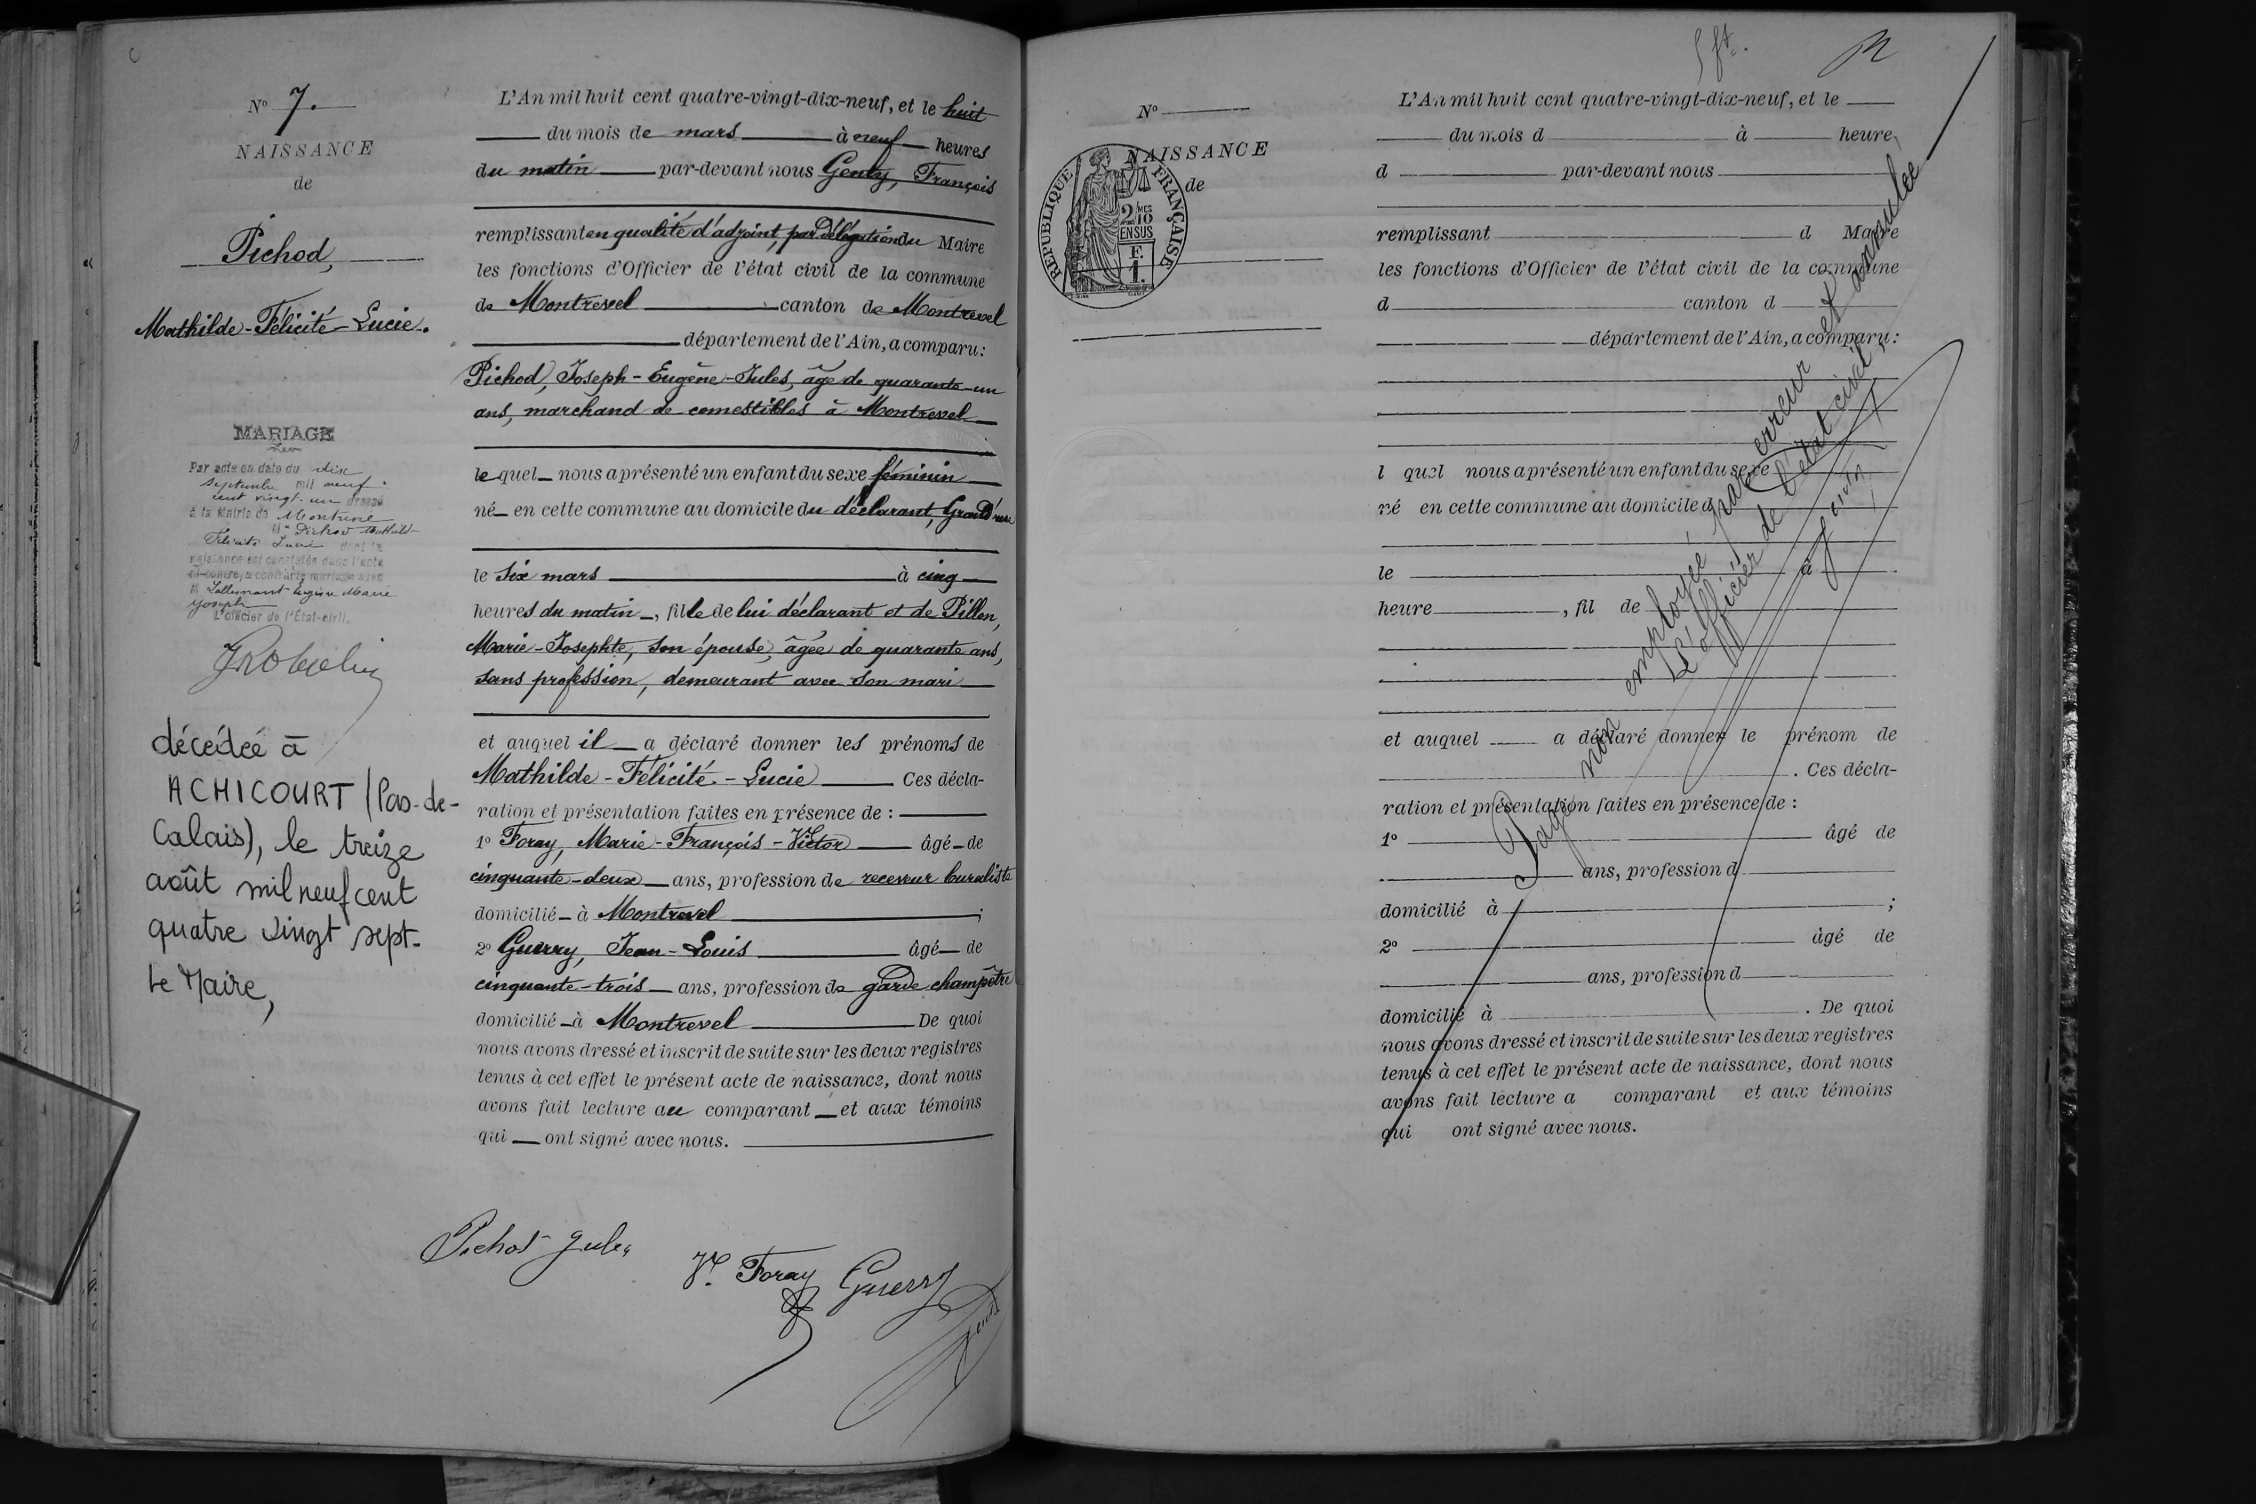 N° 7.
NAISSANCE
de
Pichod,
Mathilde-Félicité-Lucie.
MARIAGE
Par acte en date du dix
septembre mil neuf
cent vingt-un dressé
à la Mairie de Montrevel
Mlle Pichod Mathilde
Félicité Lucie dont la
naissance est constatée dans l'acte
ci-contre, a contracté mariage avec
M Lallemant Marie
Joseph
L'officier de l'État-civil.
décédée à
ACHICOURT (Pas-de-
Calais), le treize
août mil neuf cent
quatre vingt sept.
Le Maire,
L'An mil huit cent quatre-vingt-dix-neuf, et le huit
du mois de mars à neuf heures
du matin par-devant nous Genty, François
remplissant en qualité d'adjoint, par délégation du Maire
les fonctions d'Officier de l'état civil de la commune
de Montrevel canton de Montrevel
département de l'Ain, a comparu:
Pichod, Joseph-Eugène-Jules, âgé de quarante-un
ans, marchand de comestibles à Montrevel
lequel nous a présenté un enfant du sexe féminin
né en cette commune au domicile du déclarant, Grand'rue
le six mars à cinq
heures du matin, fille de lui déclarant et de Pillon,
Marie-Josephte, son épouse, âgée de quarante ans,
sans profession, demeurant avec son mari
et auquel il a déclaré donner les prénoms de
Mathilde-Félicité-Lucie Ces décla-
ration et présentation faites en présence de :
1° Foray, Marie-François-Victor âgé de
cinquante-deux ans, profession de receveur buraliste
domicilié à Montrevel ;
2° Guerry, Jean-Louis âgé de
cinquante-trois ans, profession de garde champêtre
domicilié à Montrevel De quoi
nous avons dressé et inscrit de suite sur les deux registres
tenus à cet effet le présent acte de naissance, dont nous
avons fait lecture au comparant et aux témoins
qui ont signé avec nous.
Pichod Jules
Vr. Foray
Guerry
N°
NAISSANCE
de
RÉPUBLIQUE FRANÇAISE
2 MES
10
EN SUS
F.
1.
L'An mil huit cent quatre-vingt-dix-neuf, et le
du mois d à heure
d par-devant nous
remplissant d Maire
les fonctions d'Officier de l'état civil de la commune
d canton d
département de l'Ain, a comparu:
l quel nous a présenté un enfant du sexe
né en cette commune au domicile d
le à
heure , fil de
et auquel a déclaré donner le prénom de
. Ces décla-
ration et présentation faites en présence de :
1° âgé de
ans, profession d
domicilié à ;
2° âgé de
ans, profession d
domicilié à . De quoi
nous avons dressé et inscrit de suite sur les deux registres
tenus à cet effet le présent acte de naissance, dont nous
avons fait lecture a comparant et aux témoins
qui ont signé avec nous.
Page non employée par erreur et annulée
L'officier de l'état civil,